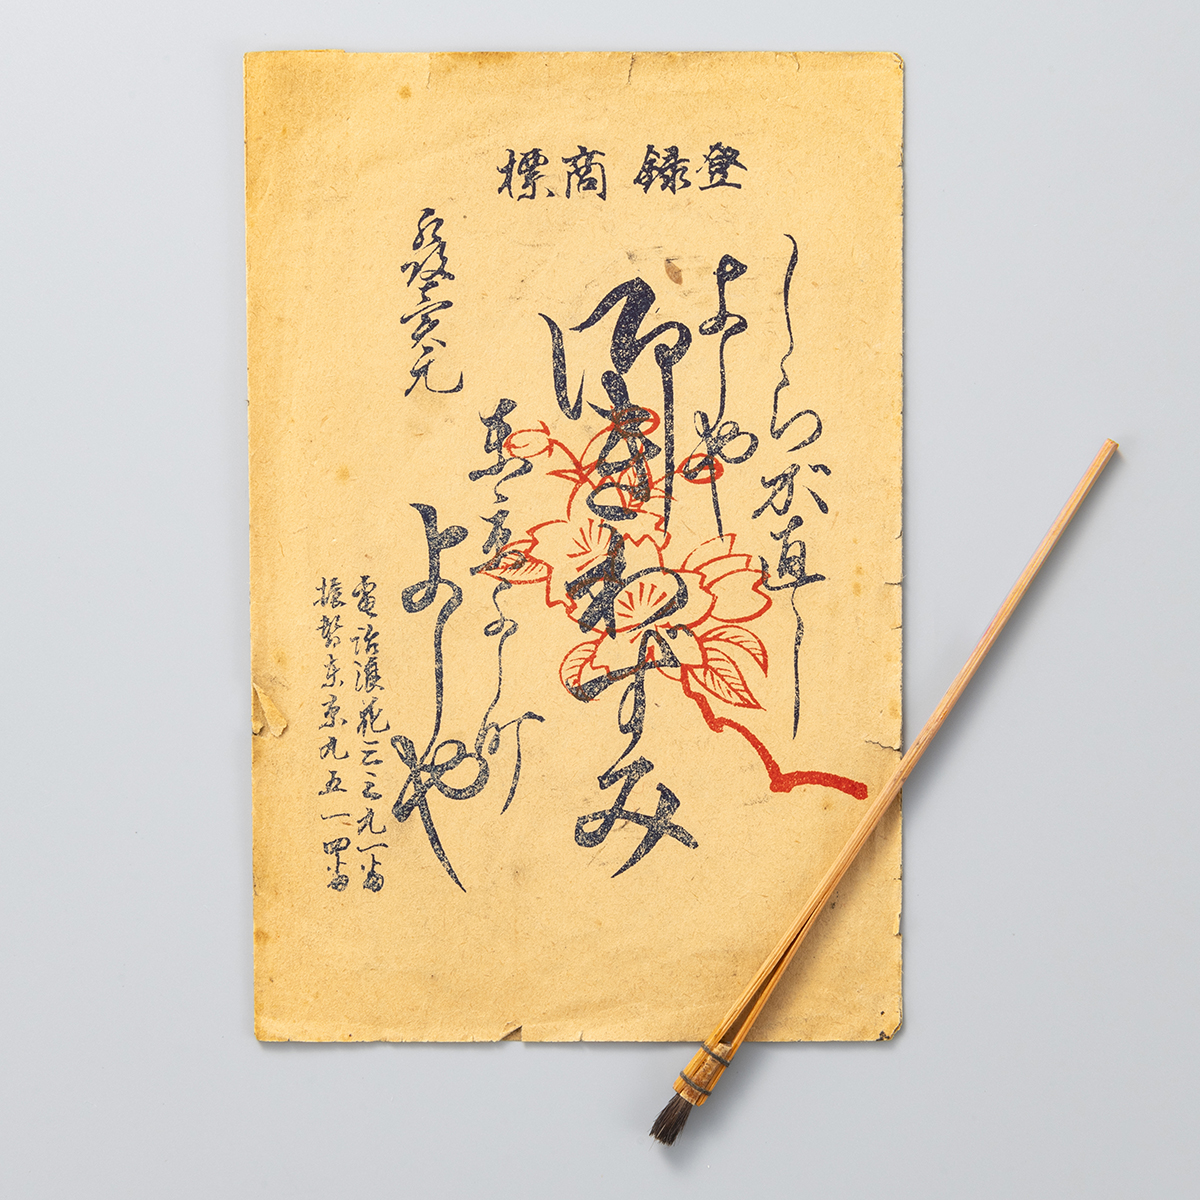 登録商標
しらが直し
よしや
御きわずみ
東京よし町
よしや
電話浪花三三九一番
振替東京九五一四番